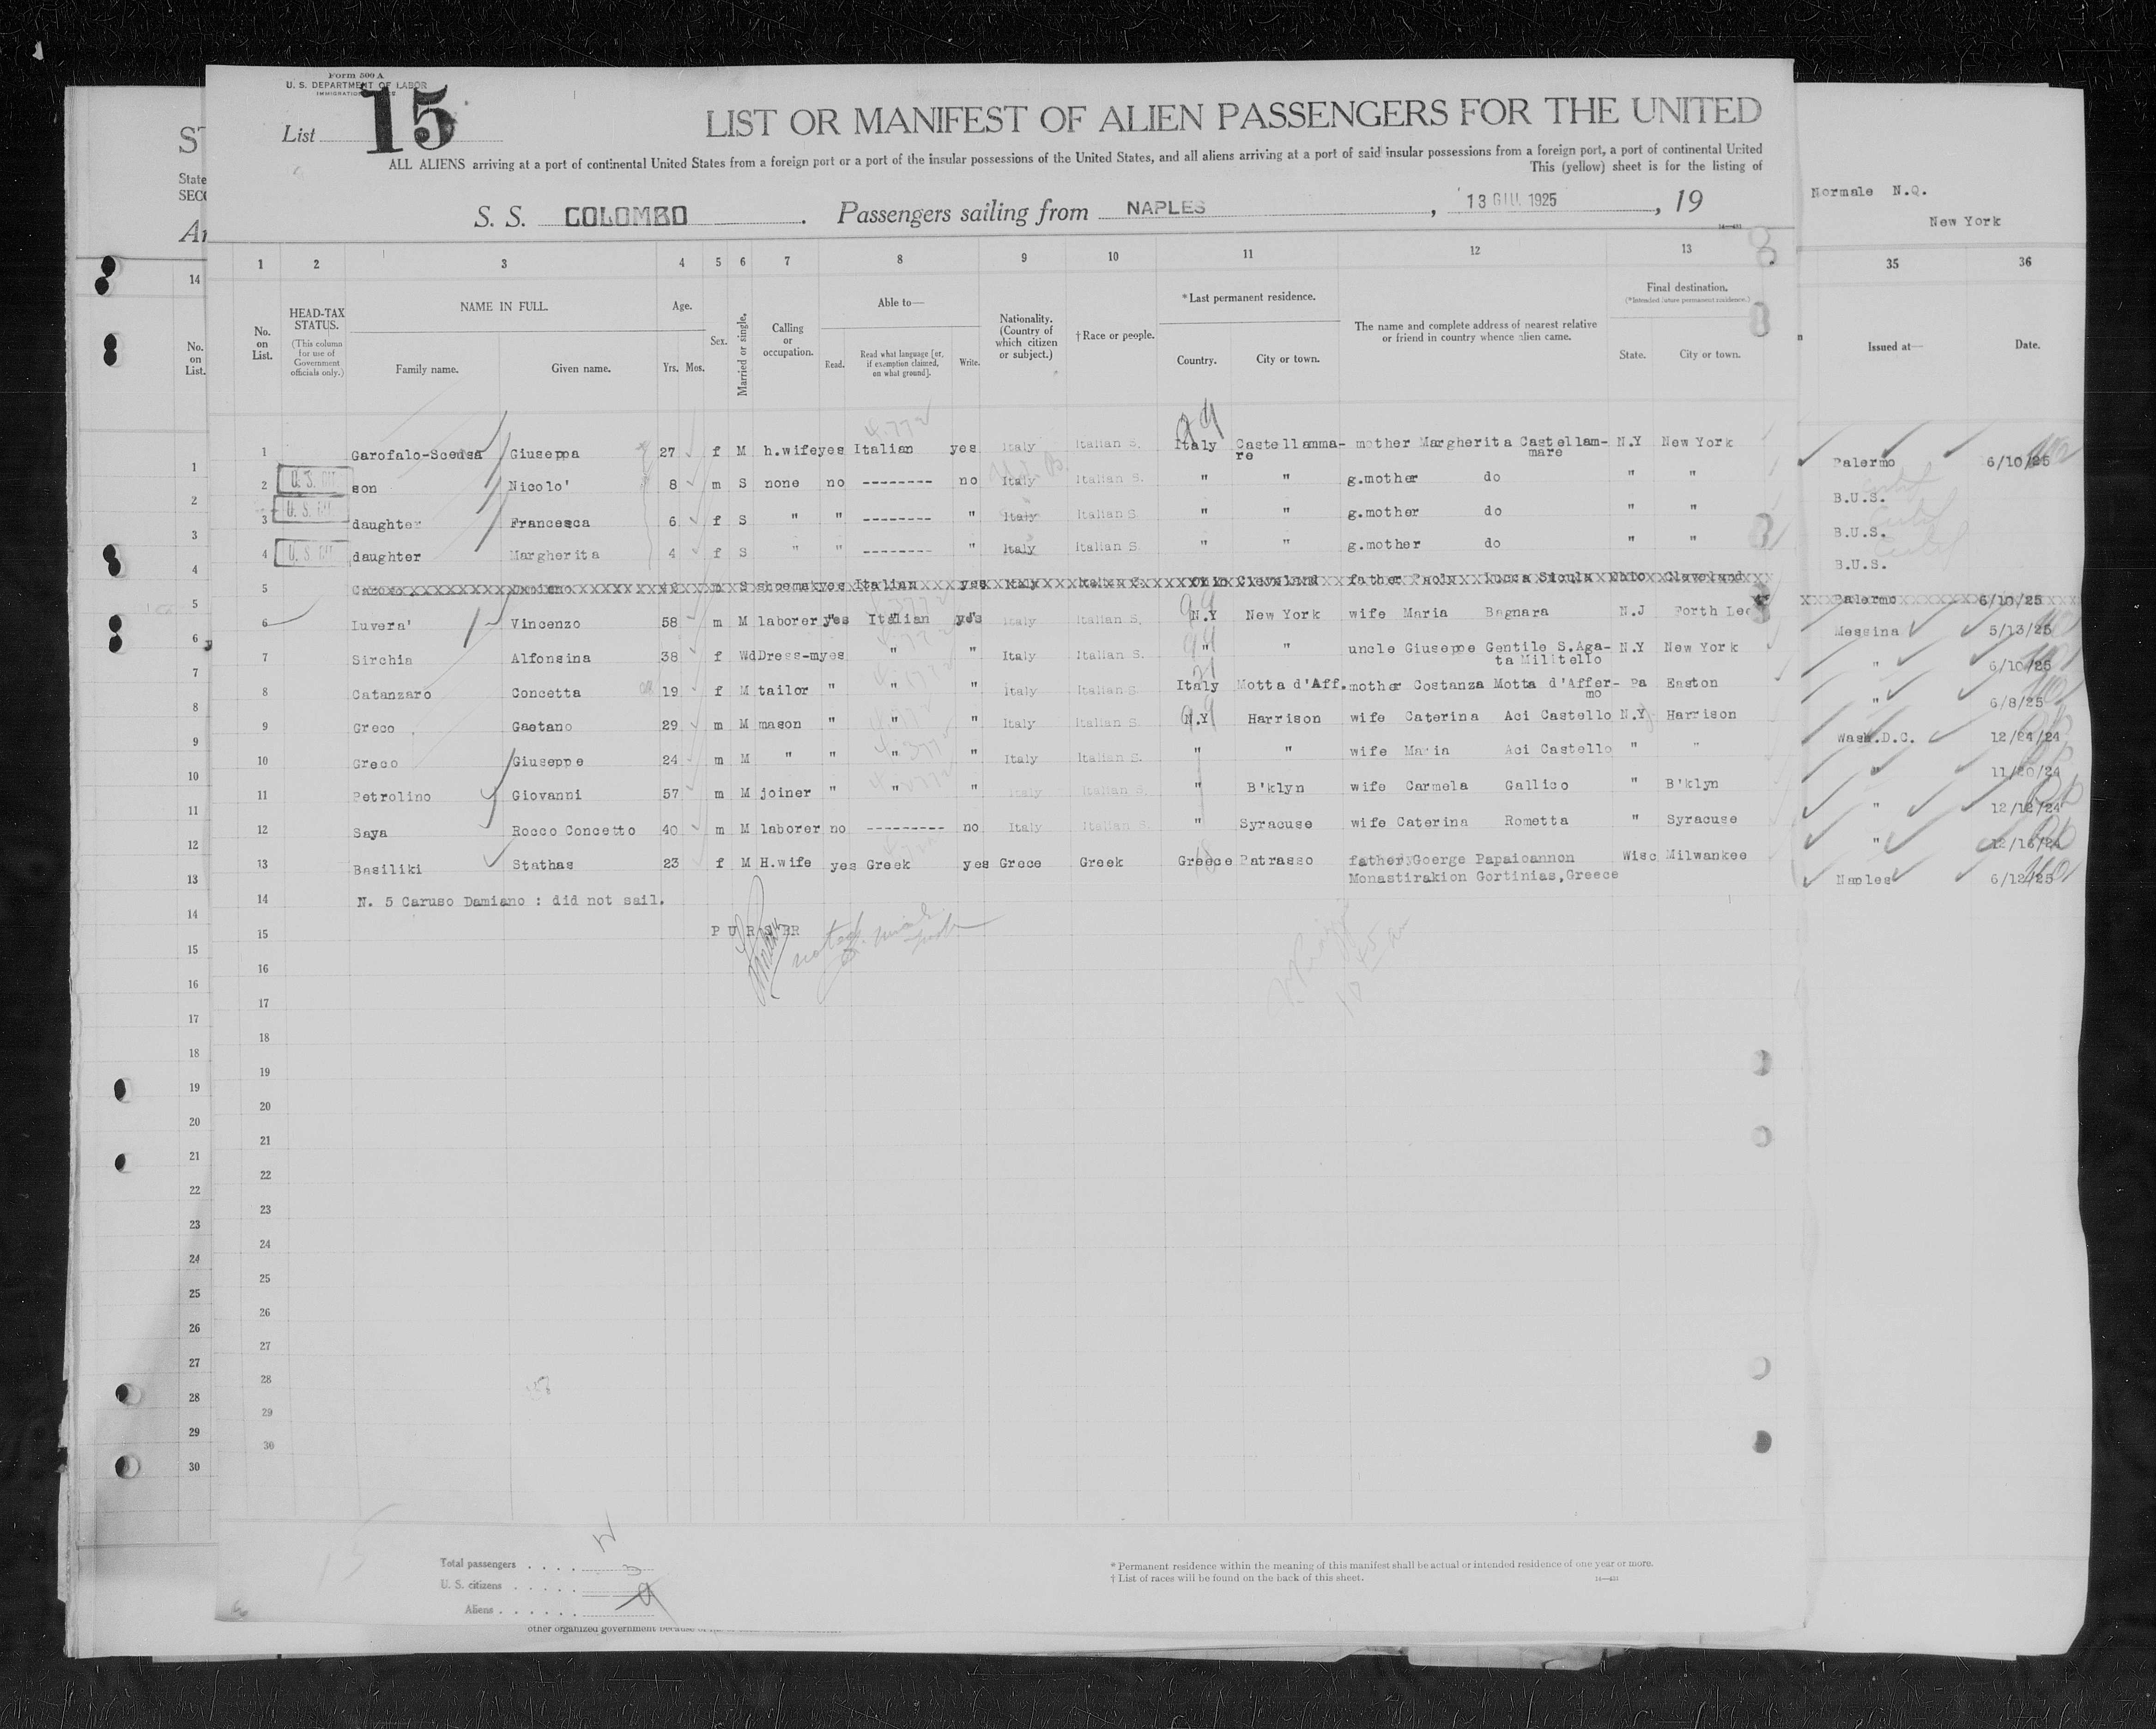 Form 500 A
U. S. DEPARTMENT OF LABOR
List 15
LIST OR MANIFEST OF ALIEN PASSENGERS FOR THE UNITED
ALL ALIENS arriving at a port of continental United States from a foreign port or a port of the insular possessions of the United States, and all aliens arriving at a port of said insular possessions from a foreign port, a port of continental United
This (yellow) sheet is for the listing of
Normale N.Q.
S. S. COLOMBO. Passengers sailing from NAPLES, 13 GIU. 1925, 19
New York
1 2 3 4 5 6 7 8 9 10 11 12 13 35 36
No. on List.
HEAD-TAX STATUS.
(This column for use of Government officials only.)
NAME IN FULL.
Family name. Given name.
Age.
Yrs. Mos.
Sex.
Married or single.
Calling or occupation.
Able to—
Read. Read what language [or, if exemption claimed, on what ground]. Write.
Nationality. (Country of which citizen or subject.)
† Race or people.
*Last permanent residence.
Country. City or town.
The name and complete address of nearest relative or friend in country whence alien came.
Final destination.
(*Intended future permanent residence.)
State. City or town.
Issued at— Date.
1 Garofalo-Scensa Giuseppa 27 f M h.wife yes Italian yes Italy Italian S. Italy Castellammare mother Margherita Castellammare N.Y New York Palermo 6/10/25
2 son Nicolo' 8 m S none no -------- no Italy Italian S. " " g.mother do " " B.U.S.
3 daughter Francesca 6 f S " " -------- " Italy Italian S. " " g.mother do " " B.U.S.
4 daughter Margherita 4 f S " " -------- " Italy Italian S. " " g.mother do " " B.U.S.
5 Caruso Damiano S shoemak yes Italian yes Italy Ohio Cleveland father Paolo Lucca Sicula Ohio Cleveland Palermo 6/10/25
6 Luvera' Vincenzo 58 m M laborer yes Italian yes Italy Italian S. N.Y New York wife Maria Bagnara N.J Forth Lee Messina 5/13/25
7 Sirchia Alfonsina 38 f Wd Dress-m yes " " Italy Italian S. " " uncle Giuseppe Gentile S.Agata Militello N.Y New York " 6/10/25
8 Catanzaro Concetta 19 f M tailor " " " Italy Italian S Italy Motta d'Aff. mother Costanza Motta d'Affermo Pa Easton " 6/8/25
9 Greco Gaetano 29 m M mason " " " Italy Italian S. N.Y Harrison wife Caterina Aci Castello N.Y Harrison Wash.D.C. 12/24/24
10 Greco Giuseppe 24 m M " " " " Italy Italian S. " " wife Maria Aci Castello " " " 11/20/24
11 Petrolino Giovanni 57 m M joiner " " " Italy Italian S. " B'klyn wife Carmela Gallico " B'klyn " 12/12/24
12 Saya Rocco Concetto 40 m M laborer no --------- no Italy Italian S. " Syracuse wife Caterina Rometta " Syracuse " 12/16/24
13 Basiliki Stathas 23 f M H.wife yes Greek yes Grece Greek Greece Patrasso father Goerge Papaioannon Monastirakion Gortinias,Greece Wisc Milwankee Naples 6/12/25
14 N. 5 Caruso Damiano : did not sail.
15 PURSER
16
17
18
19
20
21
22
23
24
25
26
27
28
29
30
Total passengers
U. S. citizens 3
Aliens 9
* Permanent residence within the meaning of this manifest shall be actual or intended residence of one year or more.
† List of races will be found on the back of this sheet.
other organized government because